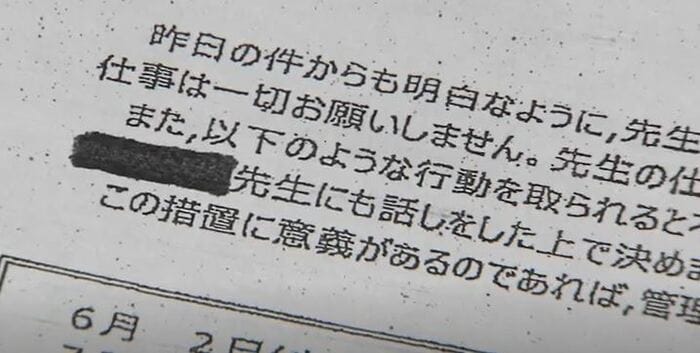 昨日の件からも明白なように,先生
仕事は一切お願いしません。先生の仕
また,以下のような行動を取られると
先生にも話しをした上で決め
この措置に意義があるのであれば,管理
6月 2日